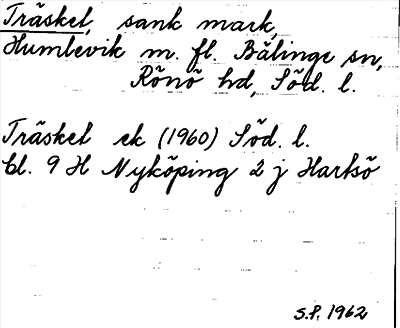 Träsket, sank mark,
Humlevik m. fl. Bälinge sn,
Rönö hd, Söd. l.
Träsket ek (1960) Söd. l.
bl. 9 H Nyköping 2 j Hartsö
S.P. 1962